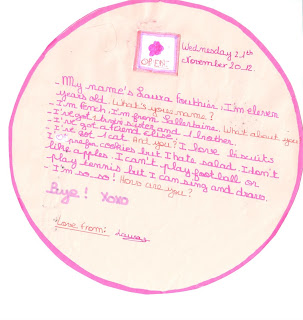 OPEN!
Wednesday 21th
November 2012.
- My name's Laura Fouthier. I'm eleven
years old. What's your name?
- I'm french, I'm from Sallertaine. What about you
- I've got sisters and 1 brother.
- I've got a friend
- I've got 1 cat. And you? I love biscuits
I prefer cookies but I hate salad. I don't
like apples. I can't play football or
play tennis but I can sing and draw.
- I'm so_so! How are you?
Bye! XOXO
Love from: Laura